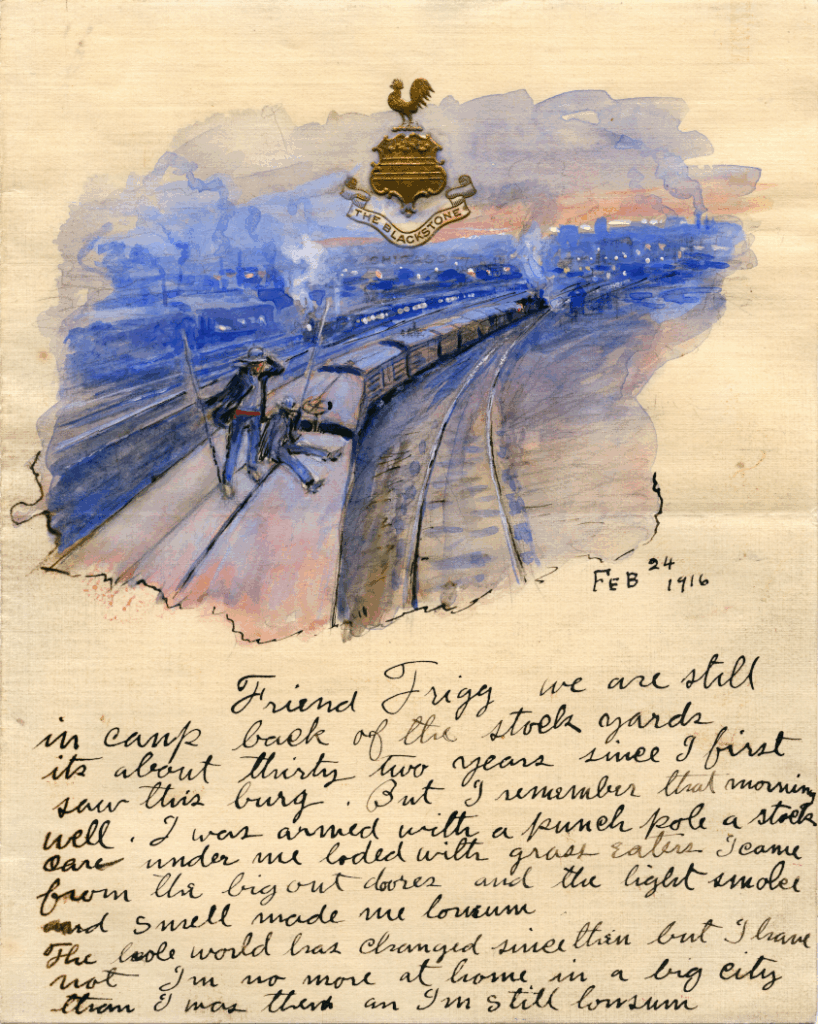 THE BLACKSTONE
CHICAGO
FEB 24 1916
Friend Trigg we are still
in camp back of the stock yards
its about thirty two years since I first
saw this burg. But I remember that morning
well. I was armed with a punch pole a stock
care under me loded with grass eaters I came
from the big out doores and the light smoke
and smell made me lonsum
The hole world has changed since then but I have
not Im no more at home in a big city
than I was then an Im still lonsum